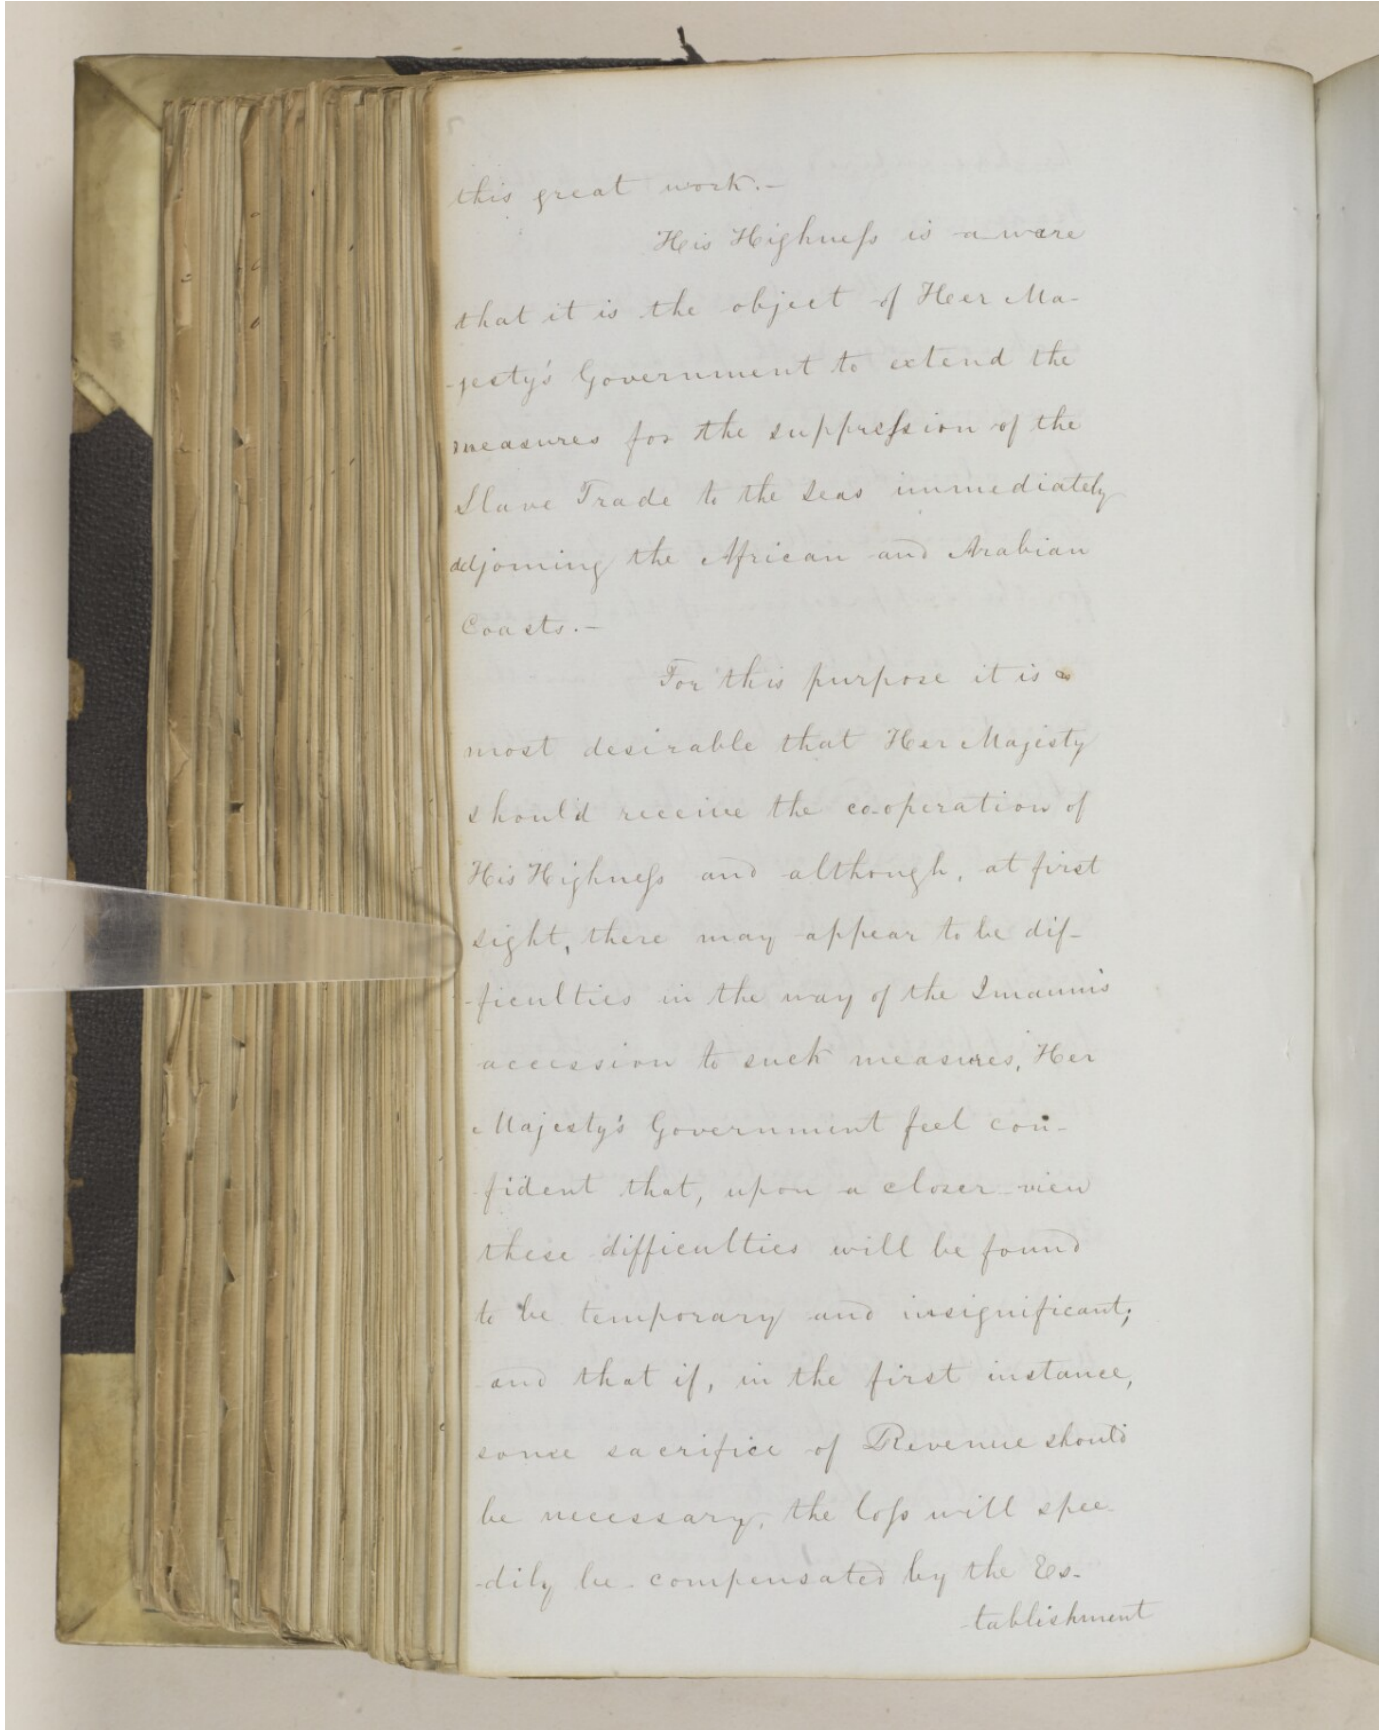 this great work.-
His Highneſs is aware
that it is the object of Her Ma-
-jesty's Government to extend the
measures for the suppreſsion of the
Slave Trade to the Seas immediately
adjoining the African and Arabian
Coasts.-
For this purpose it is
most desirable that Her Majesty
should receive the co-operation of
His Highneſs and although, at first
sight, there may appear to be dif-
-ficulties in the way of the Imaum's
accession to such measures, Her
Majesty's Government feel con-
fident that, upon a closer view
these difficulties will be found
to be temporary and insignificant;
and that if, in the first instance,
some sacrifice of Revenue should
be necessary, the loſs will spee-
-dily be compensated by the Es-
-tablishment